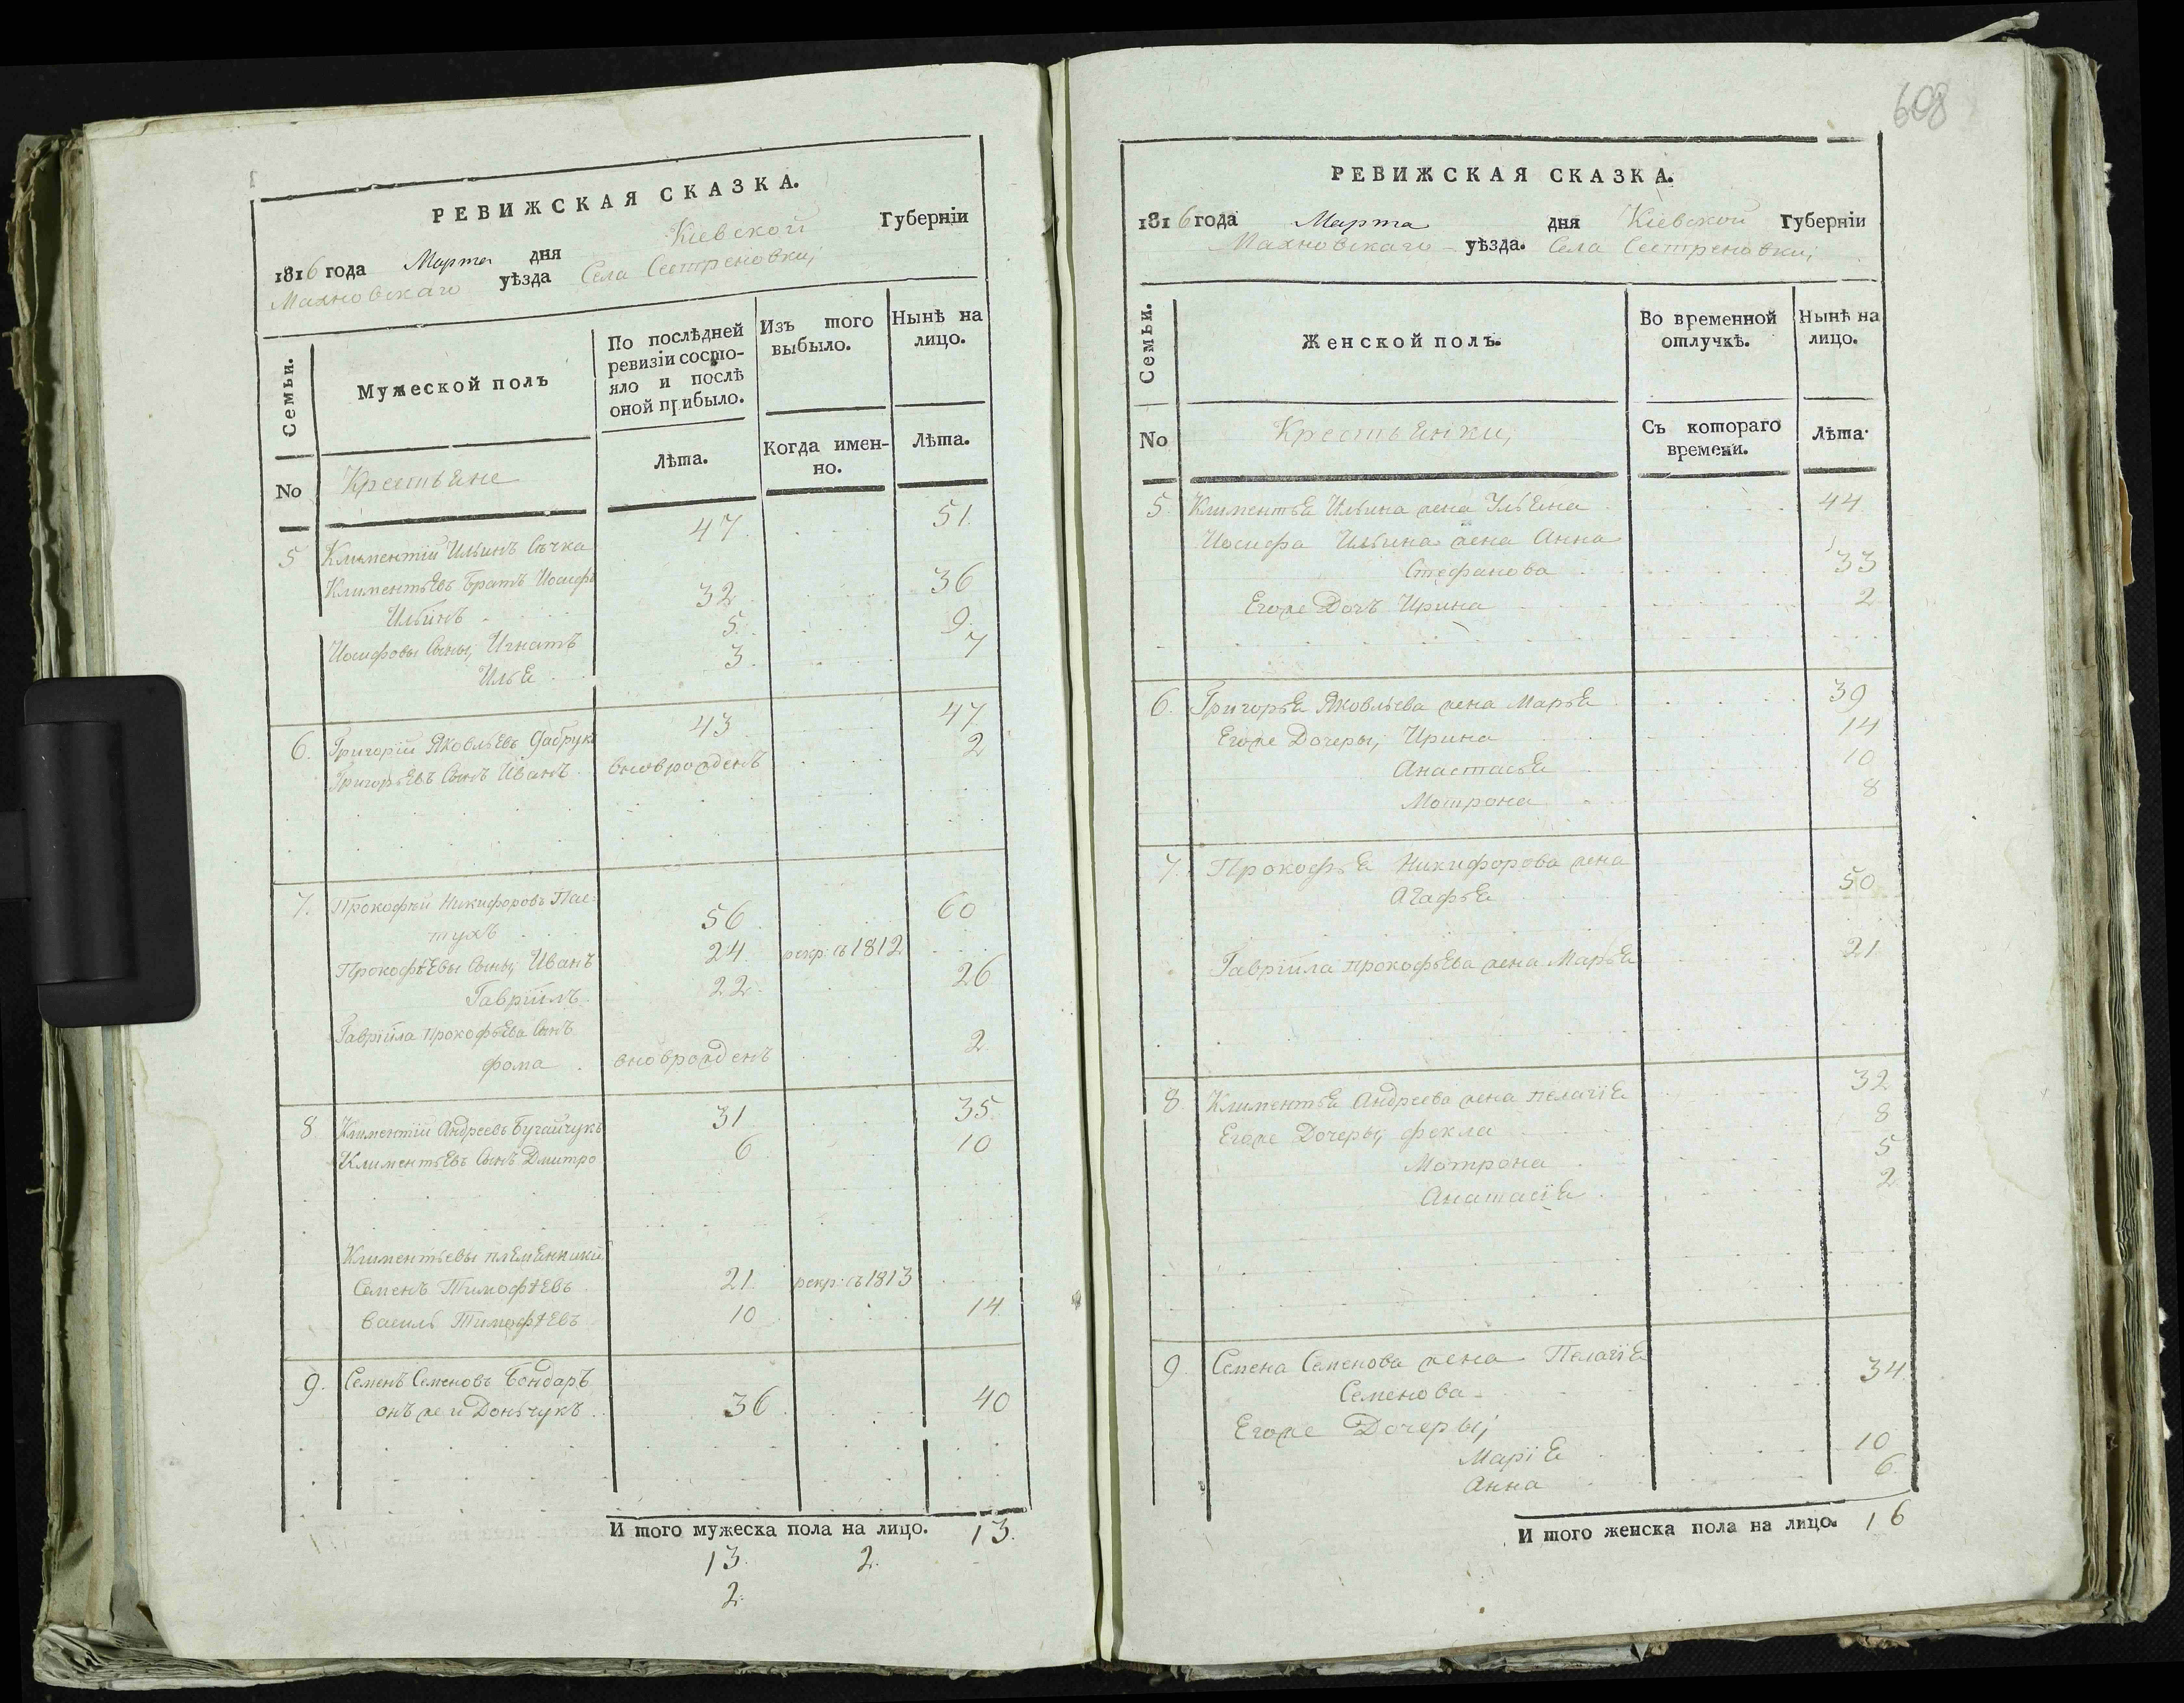 608
РЕВИЖСКАЯ СКАЗКА.
1816 года Марта дня Кіевской Губерніи
Махновскаго уѣзда Села Сестреновки;
Семьи.
Мужеской полъ
По послѣдней ревизіи состо-
яло и послѣ
оной прибыло.
Изъ того
выбыло.
Нынѣ на
лицо.
No
Крестьяне
Лѣта.
Когда имен-
но.
Лѣта.
5 Климентій Ильинъ Сѣчка 47 51.
Климентьевъ Братъ Иосифъ
Ильинъ 32 36
Иосифовы Сыны, Игнатъ 5. 9.
Илья 3. 7
6. Григорій Яковлевъ 43 47
Григорьевъ Сынъ Иванъ вновьрожденъ 2
7. Прокофѣй Никифоровъ Пас-
тухъ 56 60
Прокофѣевы Сыны, Иванъ 24. рекр: въ 1812
Гавріилъ 22. 26
Гавріила Прокофьева Сынъ
фома вновьрожденъ 2
8 Климентій Андреевъ Бугайчукъ 31 35
Климентьевъ Сынъ Дмитро 6 10
Климентьевы племянники
Семенъ Тимофѣевъ 21 рекр: въ 1813
Василь Тимофѣевъ 10 14
9. Семенъ Семеновъ Бондаръ
онъ же и Дончукъ 36 40
И того мужеска пола на лицо. 13.
13. 2.
2.
РЕВИЖСКАЯ СКАЗКА.
1816 года Марта дня Кіевской Губерніи
Махновскаго уѣзда. Села Сестреновки;
Семьи.
Женской полъ.
Во временной
отлучкѣ.
Нынѣ на
лицо.
No
Крестьянки,
Съ котораго
времени.
Лѣта.
5. Климентья Ильина жена Ульяна 44
Иосифа Ильина жена Анна
Стефанова 33
Егоже Дочь Ирина 2
6. Григорья Яковлева жена Марья 39
Егоже Дочеры, Ирина 14
Анастасья 10
Мотрона 8
7. Прокофья Никифорова жена
Агафья 50
Гавріила Прокофьева жена Марья 21
8. Климентья Андреева жена Пелагія 32
Егоже Дочеры, фекла 8
Мотрона 5
Анастасія 2
9 Семена Семенова жена Пелагія
Семенова 34.
Егоже Дочеры;
Марія 10
Анна 6.
И того женска пола на лицо. 16